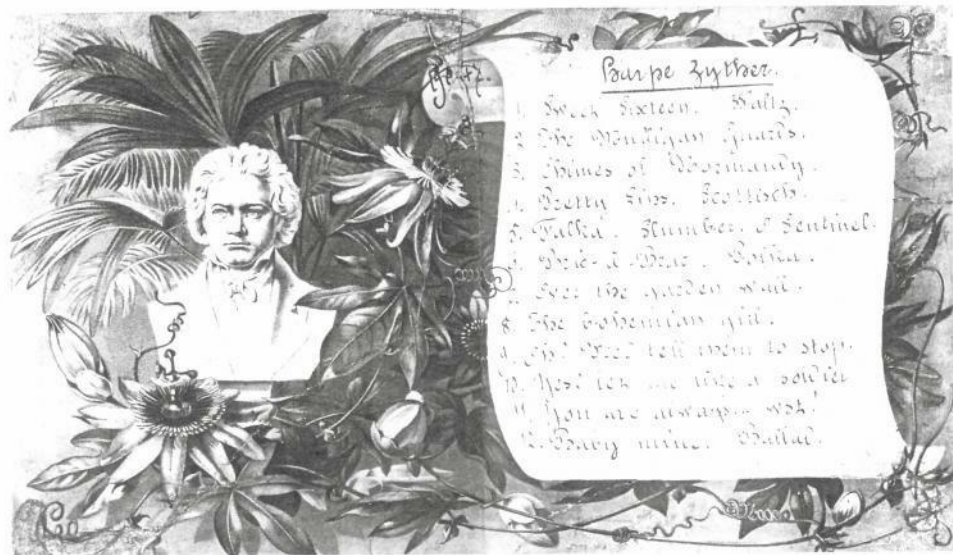 Harpe Zyther.
1. Sweet Sixteen. Waltz.
2. The Mulligan Guards.
3. Chimes of Normandy.
4. Pretty Lips. Scottisch.
5. Falka. Slumber. O Sentinel.
6. Bric-à-Brac. Polka.
7. Over the garden wall.
8. The bohemian girl.
9. tell them to stop.
10. me like a soldier
11. You are always
12. Baby mine. Ballad.